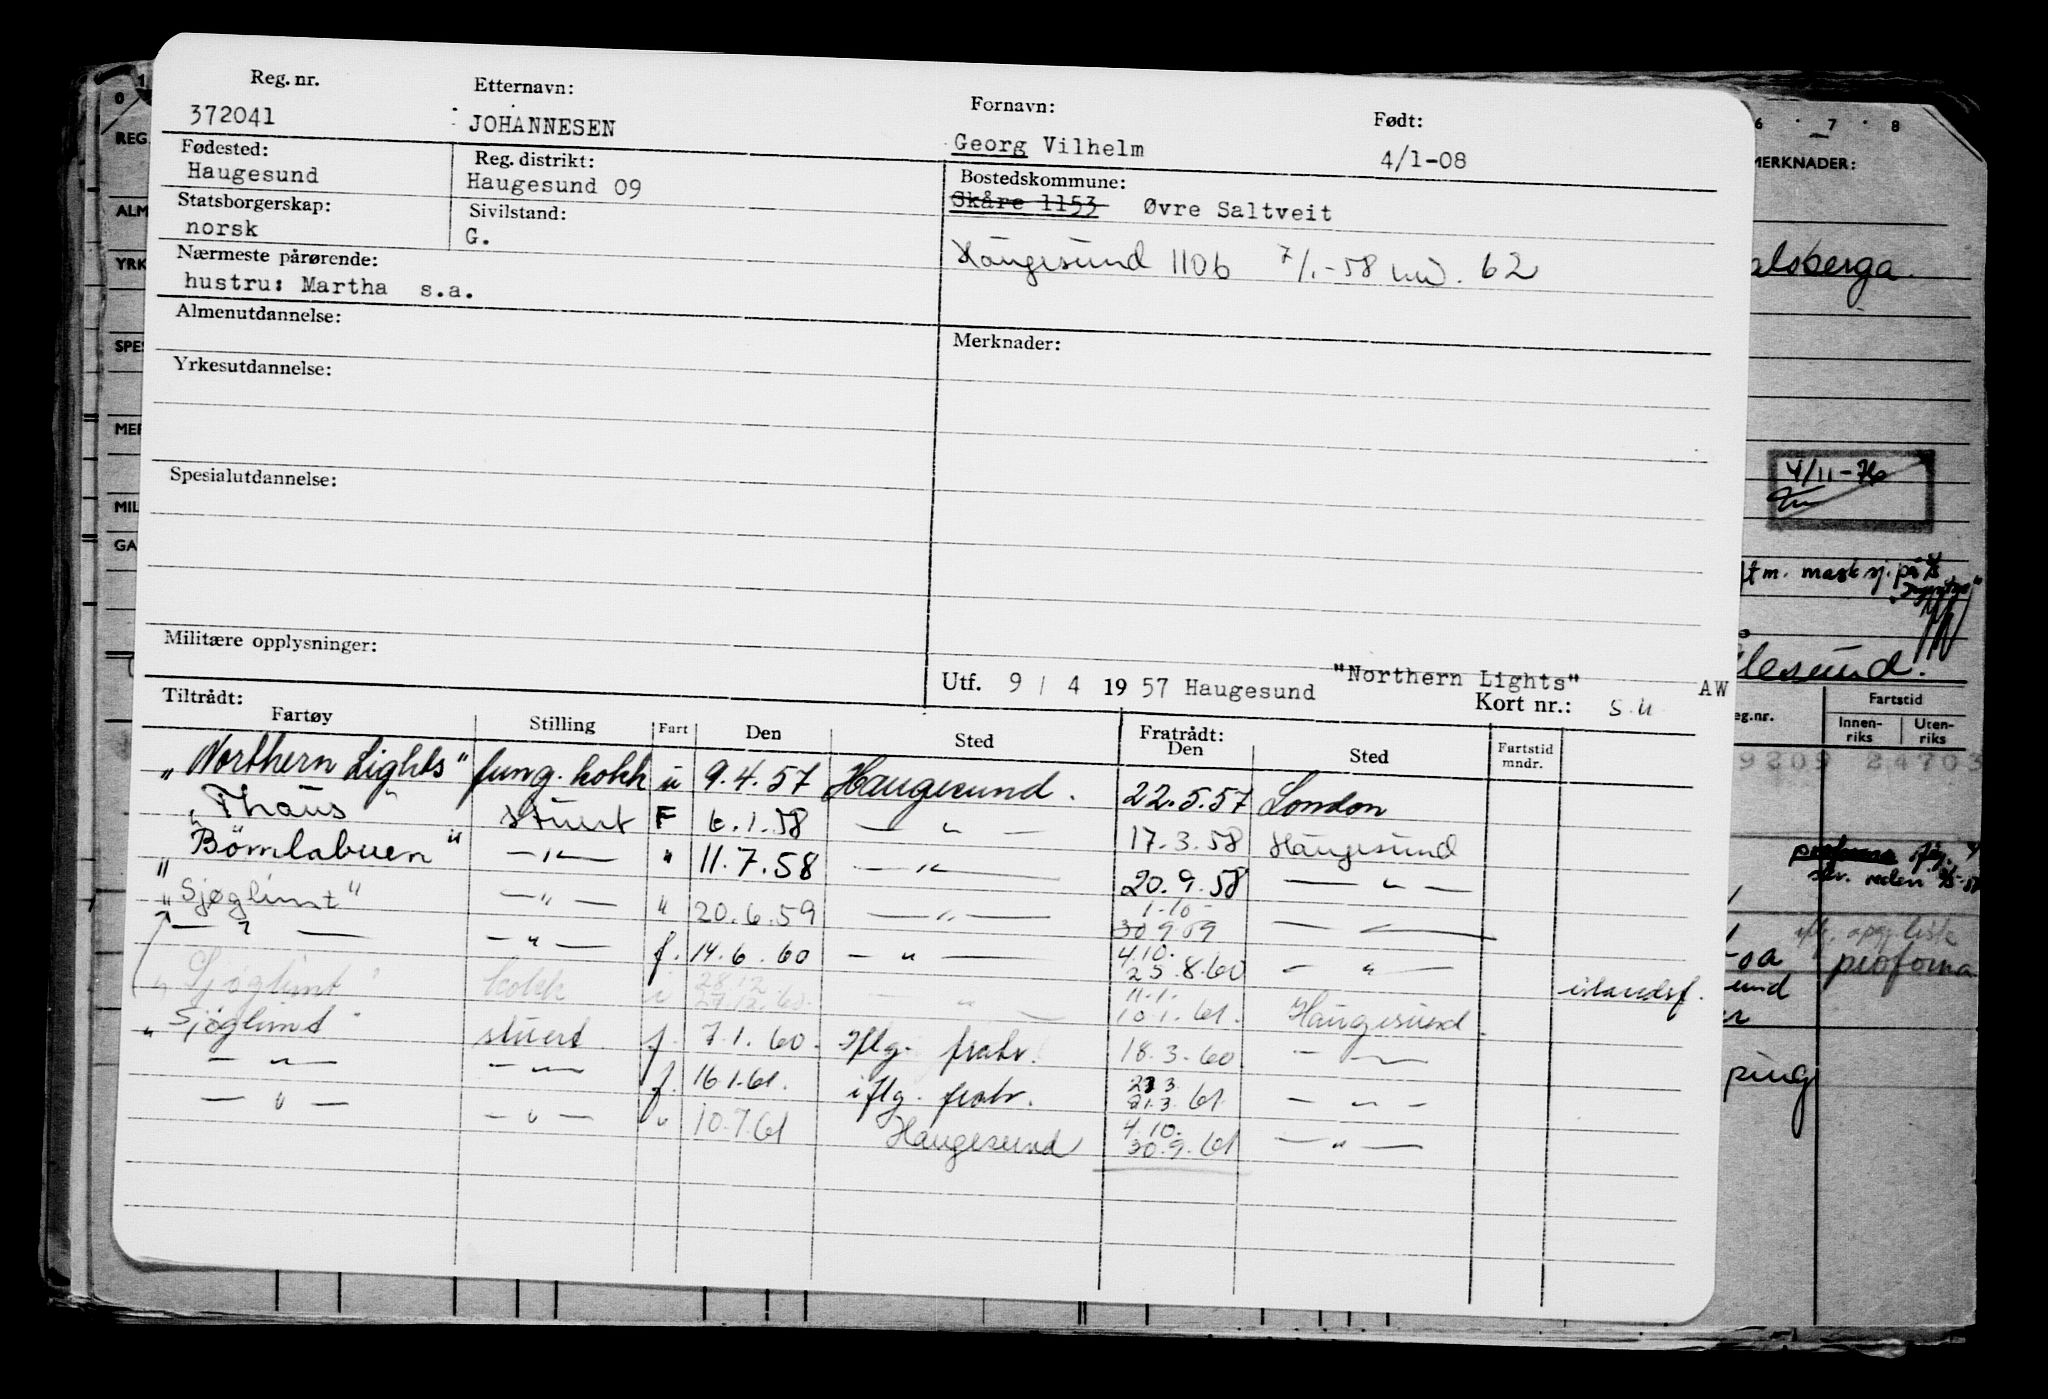 Reg. nr. Etternavn: Fornavn: Født:
372041 JOHANNESEN Georg Vilhelm 4/1-08
Fødested: Reg. distrikt: Bostedskommune:
Haugesund Haugesund 09 Skåre 1153 Øvre Saltveit
Statsborgerskap: Sivilstand:
norsk G.
Haugesund 1106 7/1.-58 62
Nærmeste pårørende:
hustru: Martha s.a.
Almenutdannelse: Merknader:
Yrkesutdannelse:
Spesialutdannelse:
Militære opplysninger:
Utf. 9 / 4 1957 Haugesund "Northern Lights" AW
Kort nr.: S.U.
Tiltrådt: Fratrådt:
Fartøy Stilling Fart Den Sted Den Sted Fartstid mndr.
"Northern Lights" fung. kokk u 9.4.57 Haugesund. 22.5.57 London
"Thaus" stuert F 6.1.58 — " — 17.3.58 Haugesund
"Bömlabuen" — " — " 11.7.58 — " — 20.9.58 — " —
"Sjøglimt" — " — " 20.6.59 — " — 1.10- 30.9.59 — —
— " — — " — f. 14.6.60 — " — 4.10. 25.8.60 — " —
"Sjøglimt" kokk i 28.12. 29.12.60. " 11.1. 10.1.61. Haugesund. islandsf.
"Sjøglimt" stuert f. 7.1.60. iflg. fratr. 18.3.60 — " —
— " — — " — f. 16.1.61. iflg. fratr. 23.3 21.3.61. — " —
— " — — " — " 10.7.61 Haugesund 4.10. 30.9.61 — " —
0 1
REG.
ALM
YRK
SPES
MIL
GA
6 7 8
MERKNADER:
alsberga.
4/11-76
t m. mask sj. på
lesund.
eg.nr. Fartstid
Innen- riks Uten- riks
9209 24703
proforma
und
er
ping